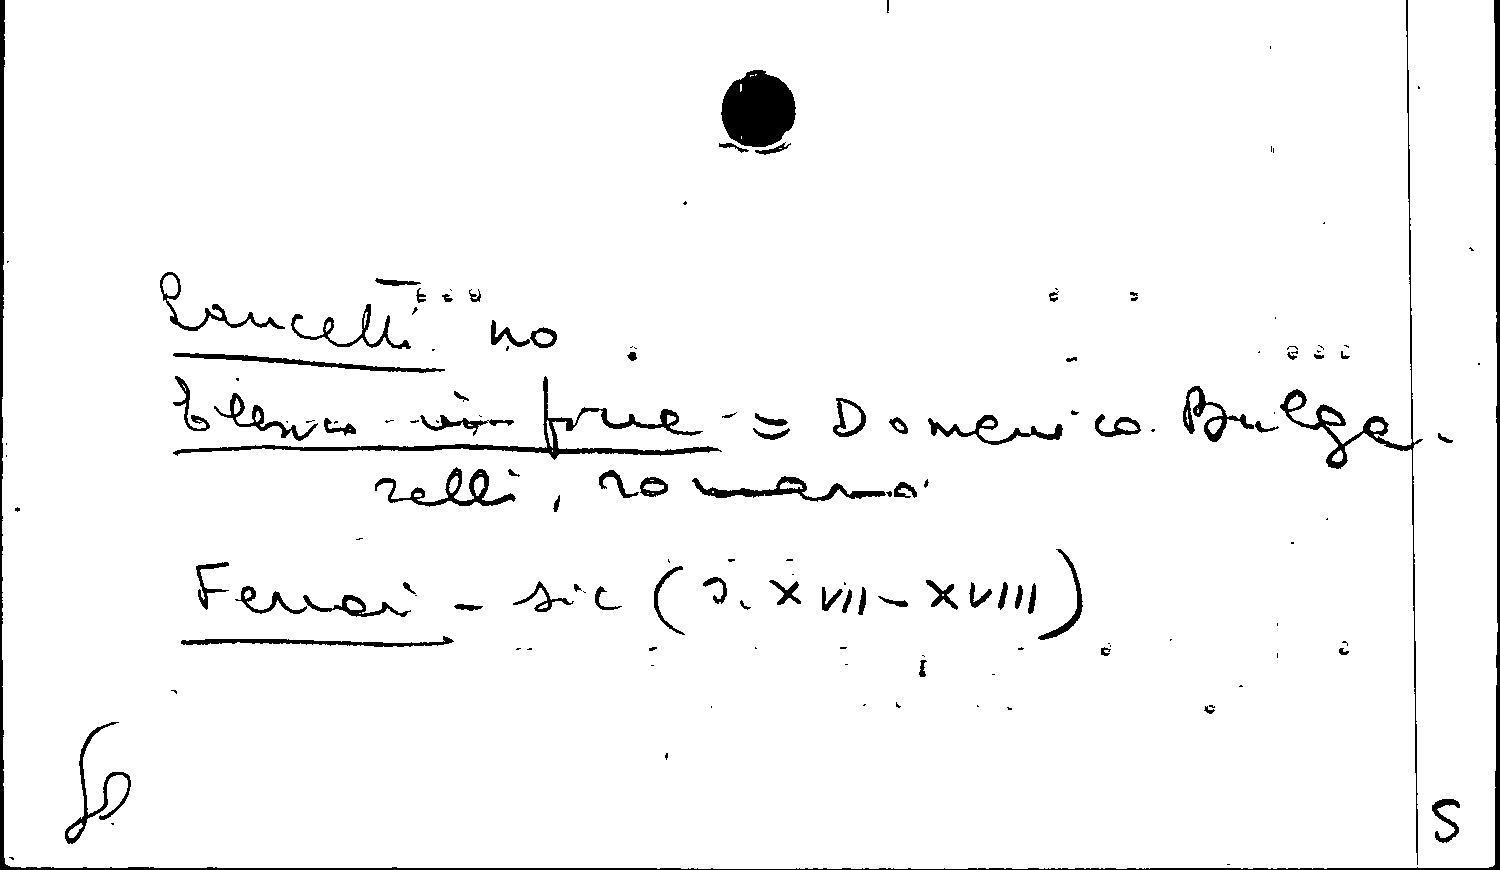 Lancelli no
Elenco in fine = Domenico Bulga-
relli, romano
Ferrari - sic (s. XVII-XVIII)
S